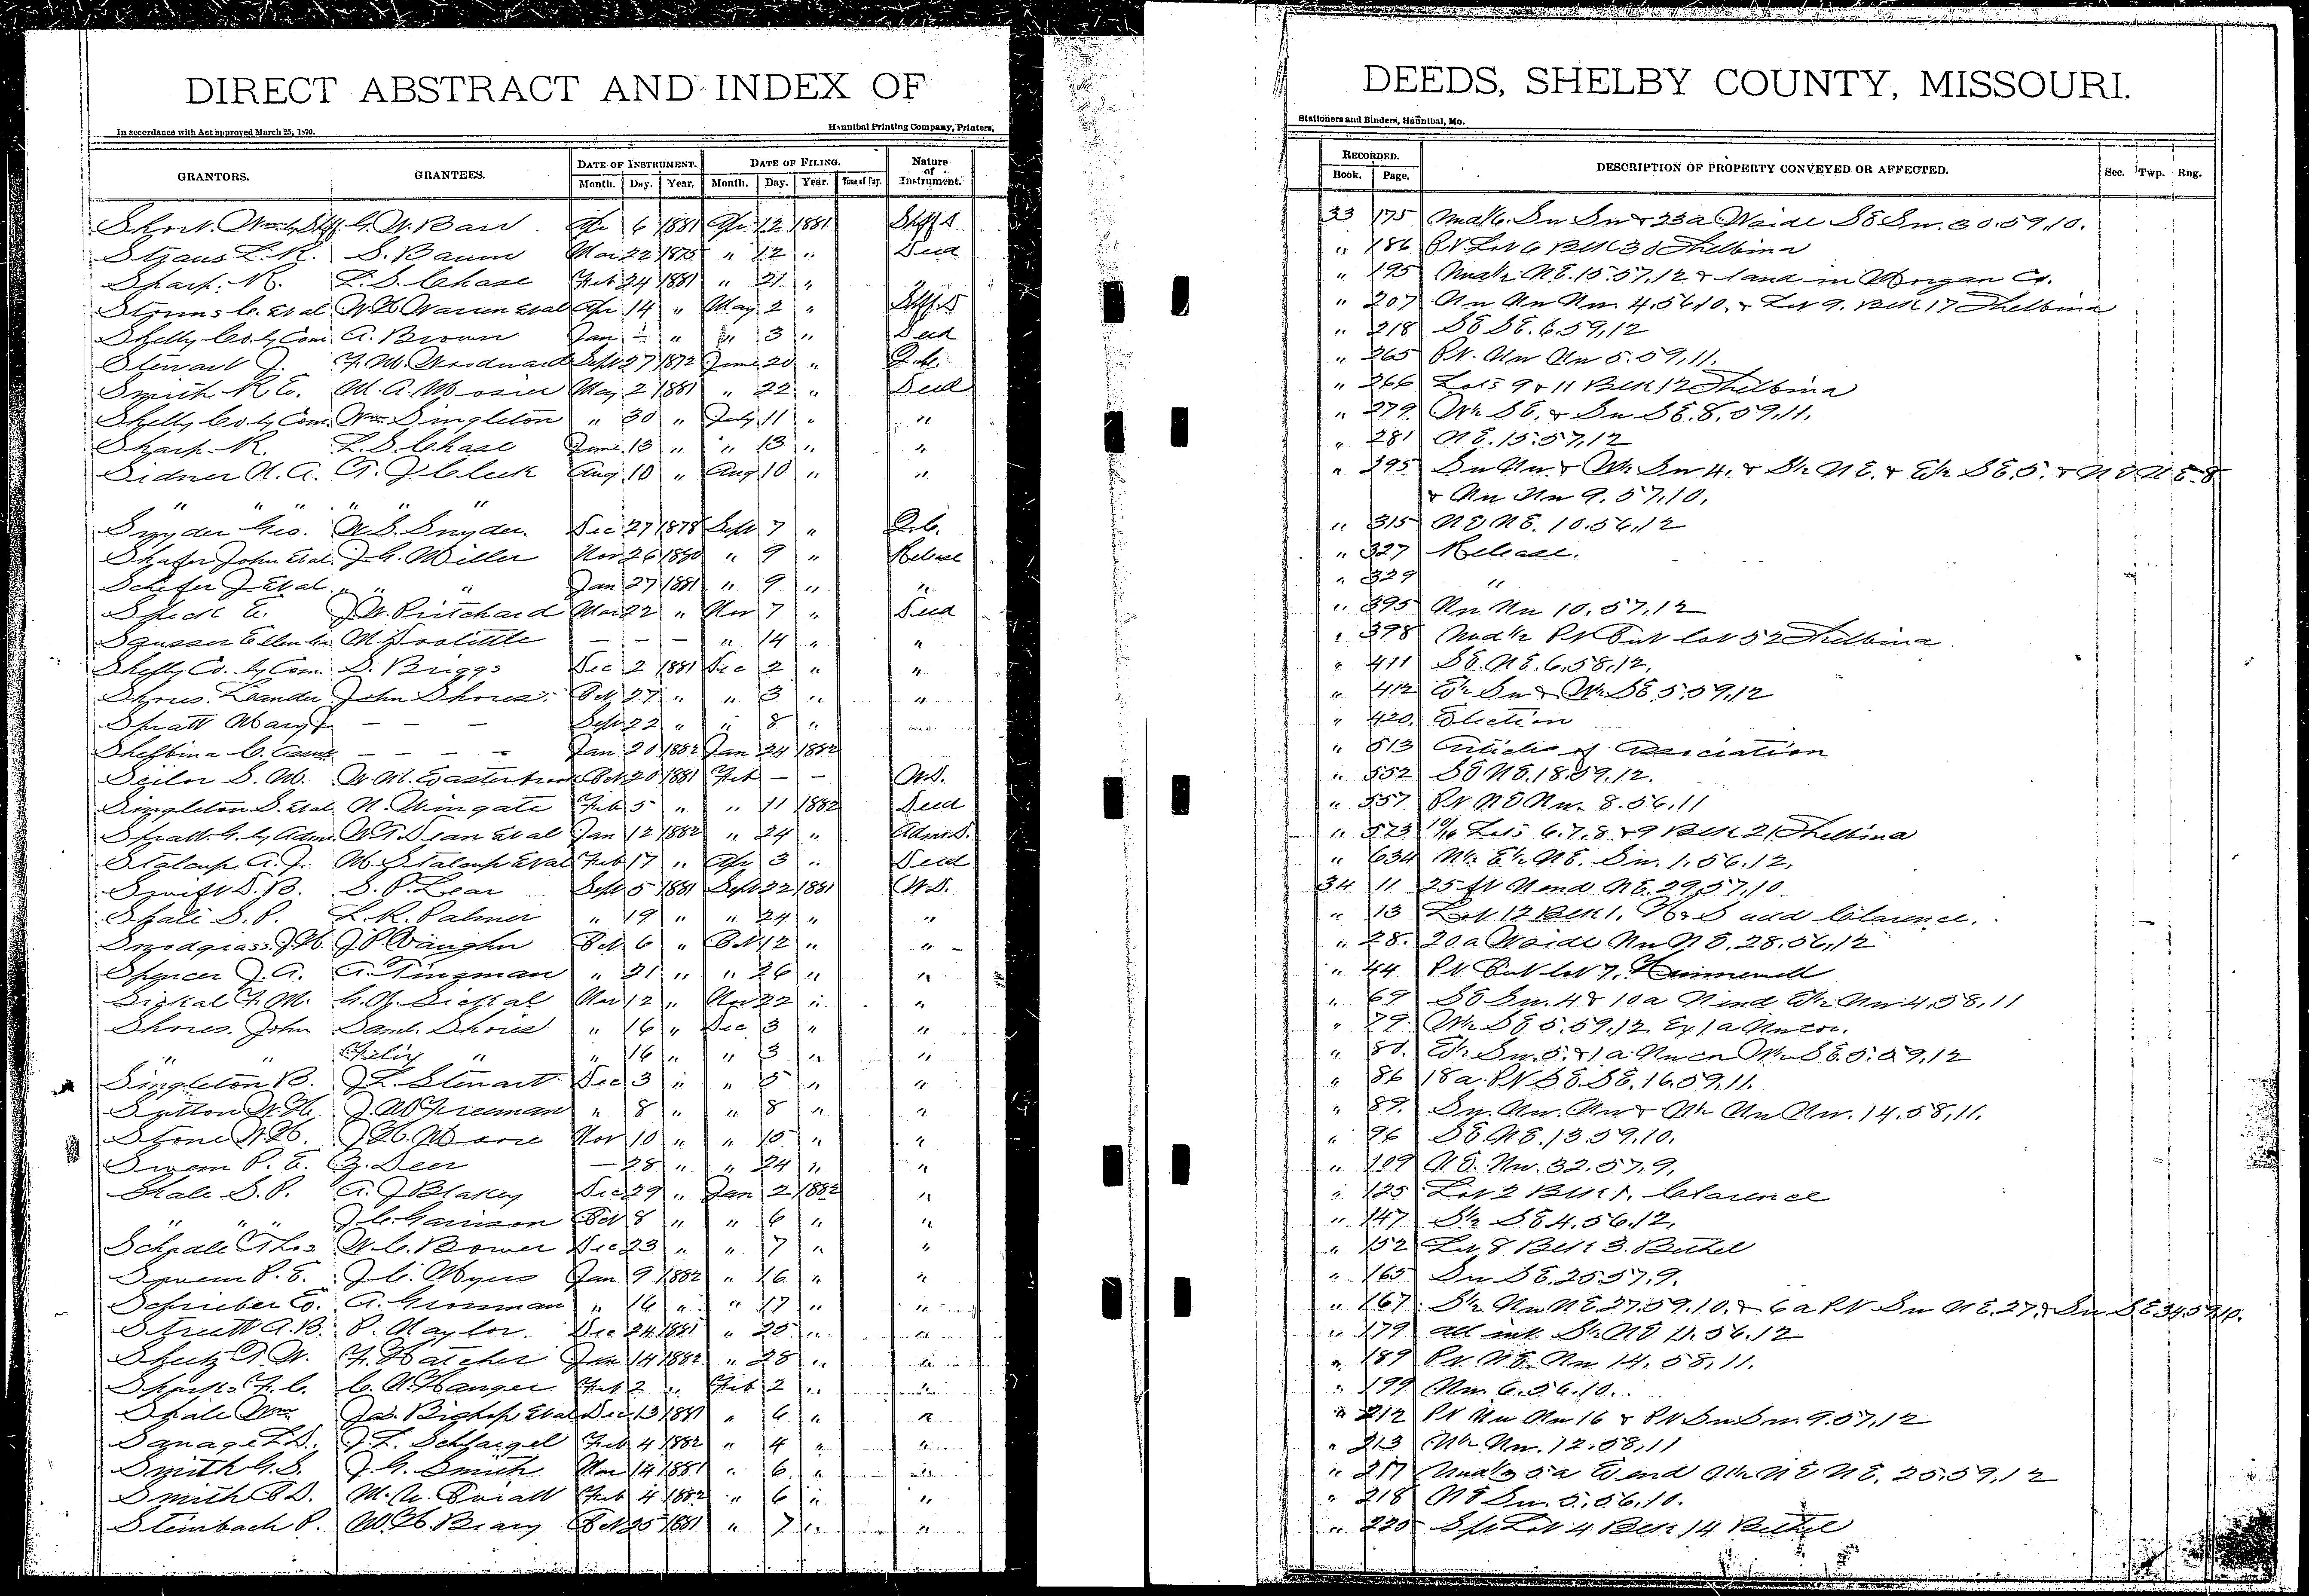 DIRECT ABSTRACT AND INDEX OF
DEEDS, SHELBY COUNTY, MISSOURI.
In accordance with Act approved March 25, 1870.
Hannibal Printing Company, Printers,
Stationers and Binders, Hannibal, Mo.
GRANTORS. GRANTEES. DATE OF INSTRUMENT. DATE OF FILING. Nature of Instrument. RECORDED. DESCRIPTION OF PROPERTY CONVEYED OR AFFECTED. Sec. Twp. Rng.
Month. Day. Year. Month. Day. Year. Time of Day. Book. Page.
Short. Wm by Shff G. W. Barr Apr 6 1881 Apr 12 1881 Shff D 33 175 Und 1/6 Sw Sw & 23a W side SE Sw. 30.59.10.
Straus L. R. S. Baum Mar 22 1875 " 12 " Deed " 186 Pt Lot 6 Blk 30 Shelbina
Sharp. R. L. S. Chase Feb 24 1881 " 21 " " 195 Und 1/2 NE.15.57.12 & land in Morgan Co.
Storms C. et al W. H. Warren et al Apr 14 " May 2 " Shff D " 207 Nw Nw Nw. 4.56.10. & Lot 9. Blk 17 Shelbina
Shelby Co. by Com A. Brown Jan " " 3 " Deed " 218 SE SE. 6.59.12
Stewart J. F. M. Woodward Sept 27 1872 June 20 " Q.C. " 265 Pt. Nw Nw 5.59.11.
Smith R. E. M. A. Mosier May 2 1881 " 22 " Deed " 266 Lots 9 & 11 Blk 12 Shelbina
Shelby Co. by Com. Wm Singleton " 30 " July 11 " " " 279. W1/2 SE. & Sw SE. 8.59.11.
Sharp. R. L. S. Chase June 13 " " 13 " " " 281 NE. 15.57.12
Sidner N. A. A. J. Cleek Aug 10 " Aug 10 " " " 295 Sw Nw. & W1/2 Sw 4. & S1/2 NE. & E1/2 SE. 5. & NE NE. 8
" " " " " & Nw Nw 9.57.10.
Snyder Geo. W. S. Snyder. Dec 27 1878 Sept 7 " Q.C. " 315 NE NE. 10.56.12
Shafer John et al J. G. Miller Nov 26 1880 " 9 " Release " 327 Release.
Schefer J et al " " Jan 27 1881 " 9 " " " 329 "
Speck E. J. W. Pritchard Mar 22 " Nov 7 " Deed " 395 Nw Nw 10.57.12
M. Doolittle — — — " 14 " " " 398 Und 1/2 Pt Out lot 52 Shelbina
Shelby Co. by Com. S. Briggs Dec 2 1881 Dec 2 " " " 411 SE. NE. 6.58.12.
Shores. Leander John Shores. Oct 27 " " 3 " " " 412 E1/2 Sw & W1/2 SE. 5.59.12
Spratt Mary J. — — — Sept 22 " " 8 " " 420. Election
Shelbina C. Assn — — — Jan 20 1882 Jan 24 1882 " 513 Articles of Association
Seiler S. M. W. M. Oct 20 1881 Feb — — W.D. " 552 SE NE. 18.59.12.
Singleton S. et al N. Wingate Feb 5 " " 11 1882 Deed " 557 Pt NE Nw. 8.56.11
Spratt. G. by Adm. W. T. Dean et al Jan 12 1882 " 24 " Adm D. " 573 10/16 Lots 6.7.8 & 9 Blk 21 Shelbina
Stalcup A. J. M. Stalcup et al Feb 17 " Apr 3 " Deed " 634 W1/2 E1/2 NE. Sw. 1.56.12.
Swift D. B. S. P. Lear Sept 5 1881 Sept 22 1881 W.D. 34 11 25 ft N end NE. 29.57.10
Shale S. P. L. R. Palmer " 19 " " 24 " " " 13 Lot 12 Blk 1. H & S add Clarence.
Snodgrass. J. H. J. P. Vaughn Oct 6 " Oct 12 " " " 28. 20a W side Nw NE. 28.56.12
Spencer J. A. A. Tingman " 21 " " 26 " " " 44 Pt Out lot 7, Hunnewell
Sickal F. M. G. W. Sickal Nov 12 " Nov 22 " " " 69 SE Sw. 4 & 10a N end E1/2 Nw. 4.58.11
Shores. John Saml. Shores " 16 " Dec 3 " " " 79. W1/2 SE 5.59.12 Ex 1a Nw cor.
" " Felix " " 16 " " 3 " " " 80. E1/2 Sw. 5. & 1a Nw cn W1/2 SE. 5.59.12
Singleton B. J. L. Stewart Dec 3 " " 5 " " " 86 18a. Pt SE. SE. 16.59.11.
Sutton W. H. J. W. Freeman " 8 " " 8 " " " 89. Sw. Nw. Nw & W1/2 Nw Nw. 14.58.11.
Stone W. H. J. H. Moore Nov 10 " " 15 " " " 96 SE. NE. 13.59.10.
Swem P. E. Z. Deer — 28 " " 24 " " " 109 NE. Nw. 32.57.9.
Shale S. P. A. J. Blakey Dec 29 " Jan 2 1882 " " 125 Lot 2 Blk 1. Clarence
" " " J. C. Garrison Oct 8 " " 6 " " " 147 S1/2 SE 4.56.12.
Schedle Thos W. C. Bower Dec 23 " " 7 " " " 152 Lot 8 Blk 3. Bethel
Swem P. E. J. C. Myers Jan 9 1882 " 16 " " " 165 Sw SE. 25.57.9.
Schrieber E. A. Gronman " 16 " " 17 " " " 167 S1/2 Nw NE. 27.59.10. & 6a Pt Sw NE. 27. & Sw SE 34.59.10.
Strutt A. B. P. Naylor. Dec 24 1881 " 25 " " " 179 all int S1/2 NE 11.56.12
Sheetz A. W. F. Hatcher Jan 14 1882 " 28 " " " 189 Pt. NE. Nw 14.58.11.
Sparks F. C. C. N. Hanger Feb 2 " Feb 2 " " " 199 Nw. 6.56.10.
Shale Wm Jas. Bishop et al Dec 13 1881 " 6 " " " 212 Pt Nw Nw 16 & Pt Sw Sw 9.57.12
Savage L. D. J. L. Schlargel Feb 4 1882 " 4 " " " 213 W1/2 Nw. 12.58.11
Smith G. S. J. G. Smith Mar 14 1881 " 6 " " " 217 Und 1/3 5a E end NE NE. 25.59.12
Smith D. M. A. Feb 4 1882 " 6 " " " 218 NE Sw. 5.56.10.
Steinbach P. W. H. Oct 25 1881 " 7 " " " 220 Lot 4 Blk 14 Bethel